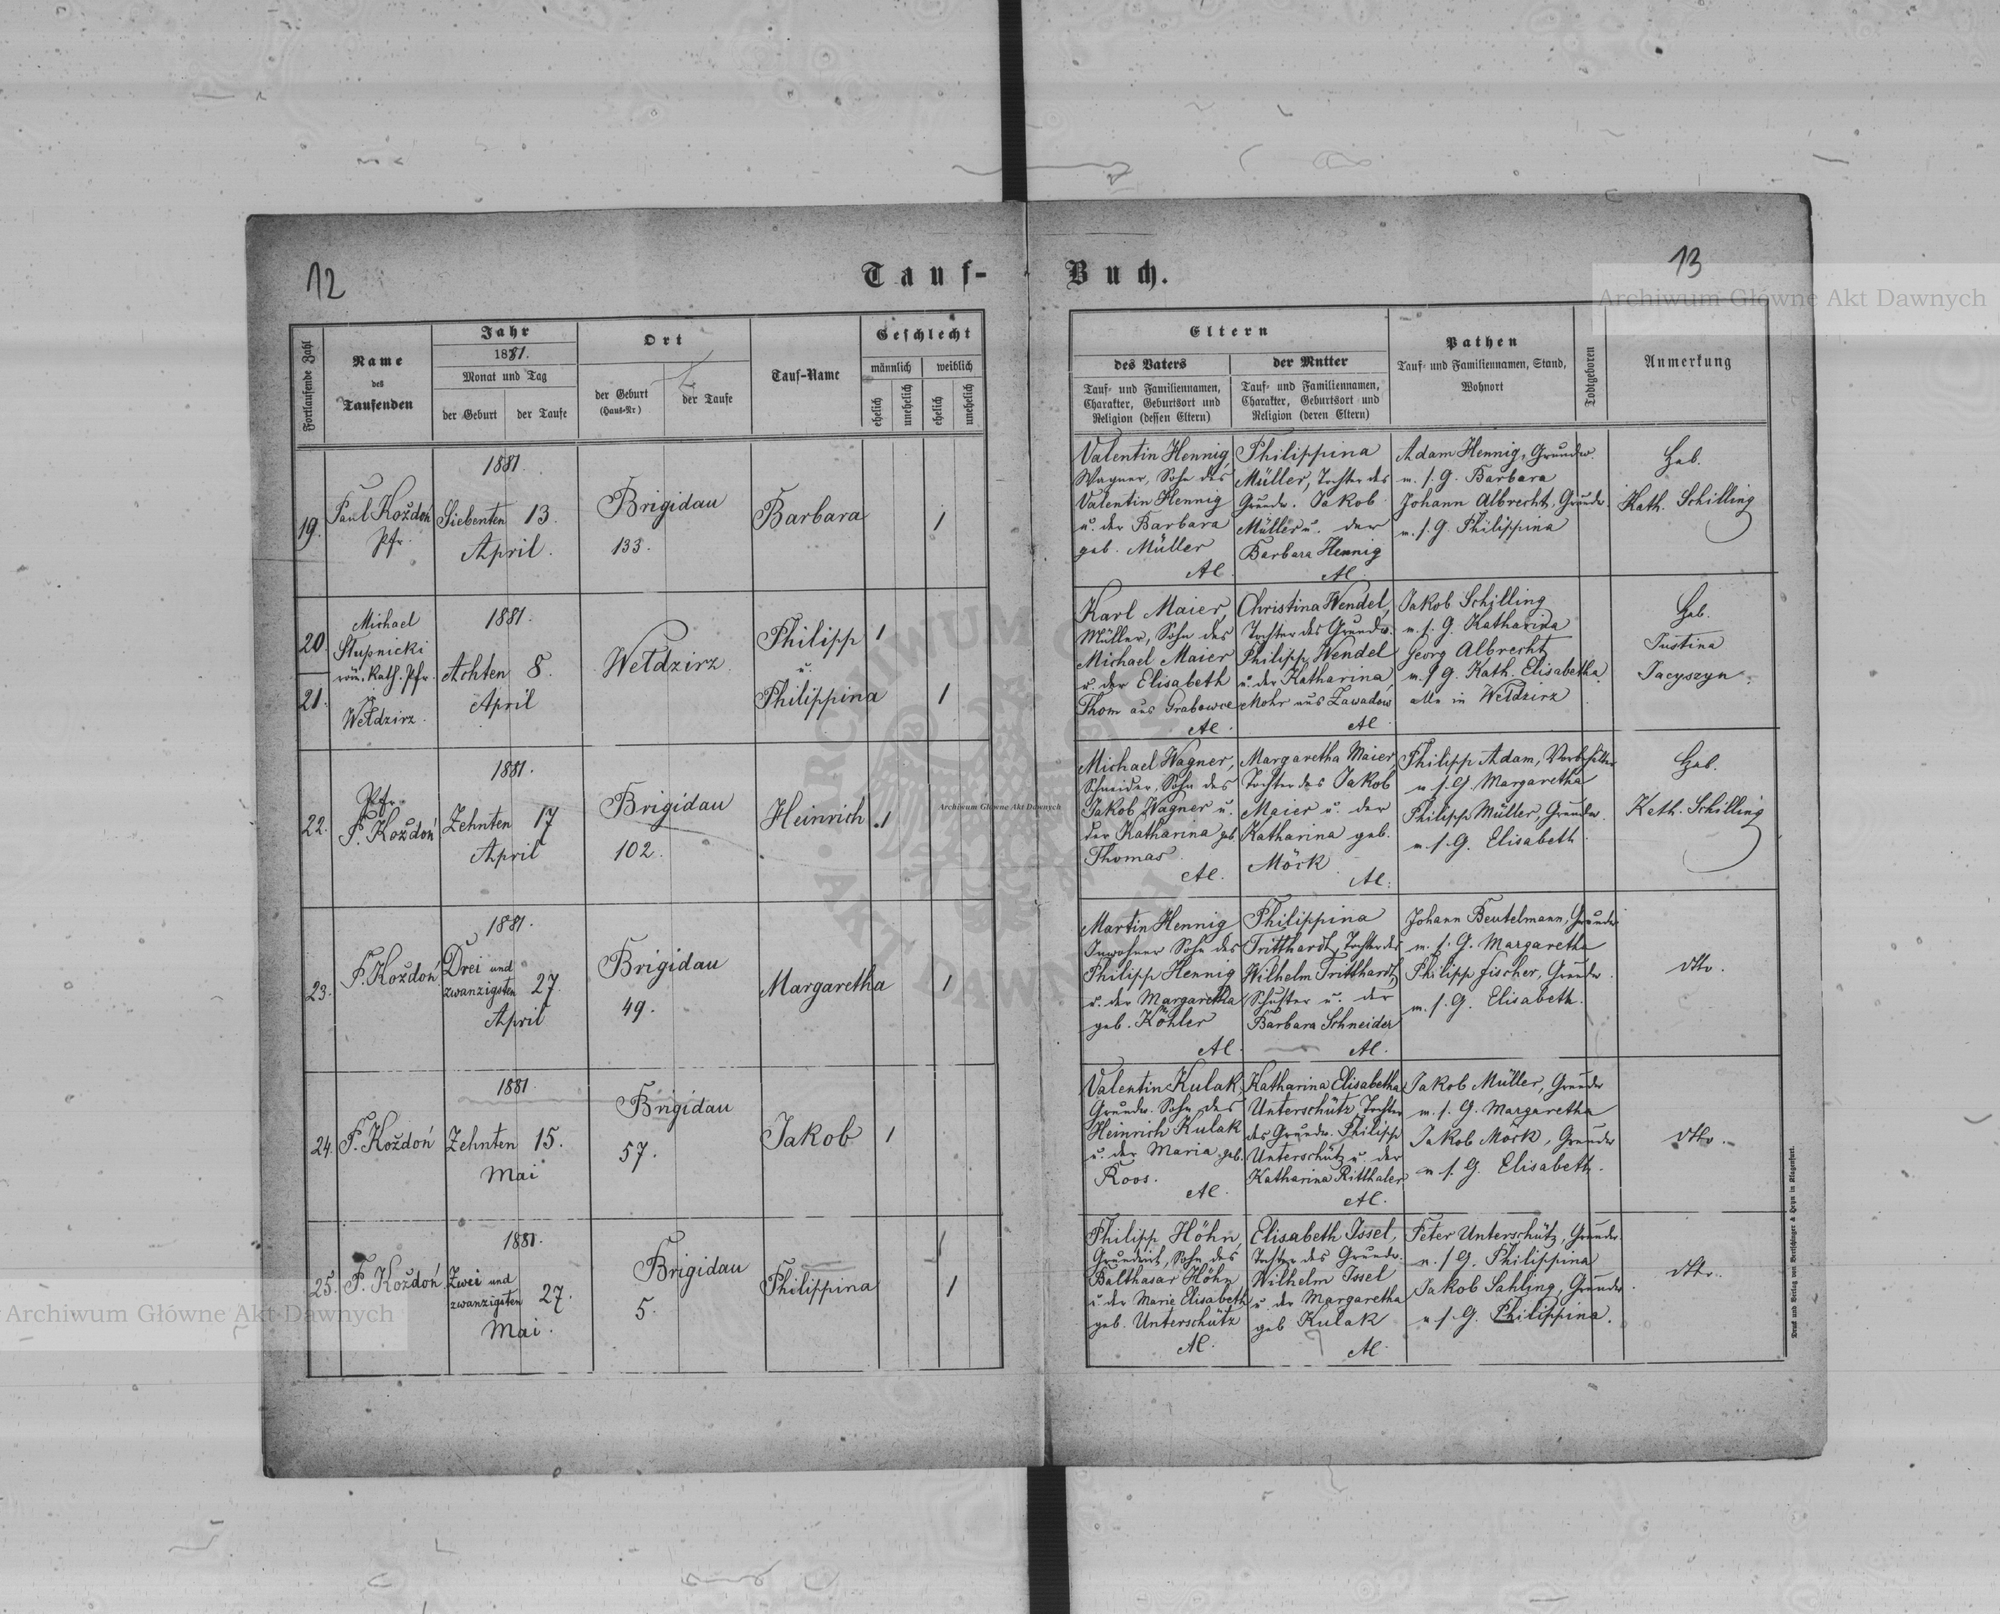 12
Tauf-
Buch.
13
Archiwum Główne Akt Dawnych
Fortlaufende Zahl
Name
des
Taufenden
Jahr
1881.
Monat und Tag
der Geburt
der Taufe
Ort
der Geburt
(Haus-Nr)
der Taufe
Tauf-Name
Geschlecht
männlich
weiblich
ehelich
unehelich
ehelich
unehelich
Eltern
des Vaters
Tauf- und Familiennamen,
Charakter, Geburtsort und
Religion (dessen Eltern)
der Mutter
Tauf- und Familiennamen,
Charakter, Geburtsort und
Religion (deren Eltern)
Pathen
Tauf- und Familiennamen, Stand,
Wohnort
Todtgeboren
Anmerkung
19.
Paul Koždoń
Pfr.
1881.
Siebenten
April.
13.
Brigidau
133.
Barbara
1
Valentin Hennig,
Wagner, Sohn des
Valentin Hennig
u. der Barbara
geb. Müller
AC.
Philippina
Müller, Tochter des
Grundw. Jakob
Müller u. der
Barbara Hennig
AC.
Adam Hennig, Grundw.
u. s. G. Barbara
Johann Albrecht, Grundw.
u. s. G. Philippina
Heb.
Kath. Schilling
20.
21.
Michael
Słupnicki
röm. Kath. Pfr.
in
Wełdzirz.
1881.
Achten
April
8.
Wełdzirz.
Philipp
u.
Philippina
1
1
Karl Maier,
Müller, Sohn des
Michael Maier
u. der Elisabeth
Thom aus Grabowce
AC.
Christina Wendel,
Tochter des Grundw.
Philipp Wendel
u. der Katharina
Mohr aus Zawadów
AC.
Jakob Schilling
u. s. G. Katharina
Georg Albrecht
u. s. G. Kath. Elisabetha
alle in Wełdzirz
Heb.
Justina
Jacyszyn.
22.
Pfr.
P. Koždoń
1881.
Zehnten
April
17
Brigidau
102.
Heinrich
1
Michael Wagner,
Schneider, Sohn des
Jakob Wagner u.
der Katharina geb.
Thomas.
AC.
Margaretha Maier,
Tochter des Jakob
Maier u. der
Katharina geb.
Mörk.
AC.
Philipp Adam,
u. s. G. Margaretha
Philipp Müller, Grundw.
u. s. G. Elisabeth.
Heb.
Kath. Schilling
23.
P. Koždoń
1881.
Drei und
zwanzigsten
April
27.
Brigidau
49.
Margaretha
1
Martin Hennig
Inwohner Sohn des
Philipp Hennig
u. der Margaretha
geb. Köhler
AC.
Philippina
Tritthardt, Tochter des
Wilhelm Tritthardt,
Schuster u. der
Barbara Schneider
AC.
Johann Beutelmann, Grundw
m. s. G. Margaretha
Philipp Fischer, Grundw.
m. s. G. Elisabeth.
dtto.
24.
P. Koždoń
1881.
Zehnten
Mai
15.
Brigidau
57.
Jakob
1
Valentin Kulak,
Grundw. Sohn des
Heinrich Kulak
u. der Maria geb.
Roos.
AC.
Katharina Elisabetha
Unterschütz, Tochter
des Grundw. Philipp
Unterschütz u. der
Katharina Ritthaler
AC.
Jakob Müller, Grundw
m. s. G. Margaretha
Jakob Mörk, Grundw
m. s. G. Elisabeth.
dtto.
25.
P. Koždoń
1881.
Zwei und
zwanzigsten
Mai.
27.
Brigidau
5.
Philippina
1
Philipp Höhn,
Grundwirt, Sohn des
Balthasar Höhn
u. der Marie Elisabeth
geb. Unterschütz
AC.
Elisabeth Issel,
Tochter des Grundw.
Wilhelm Issel
u. der Margaretha
geb Kulak
AC.
Peter Unterschütz, Grundw
u. s. G. Philippina
Jakob Sahling, Grundw
u. s. G. Philippina.
dtto.
Archiwum Główne Akt Dawnych
Archiwum Główne Akt Dawnych